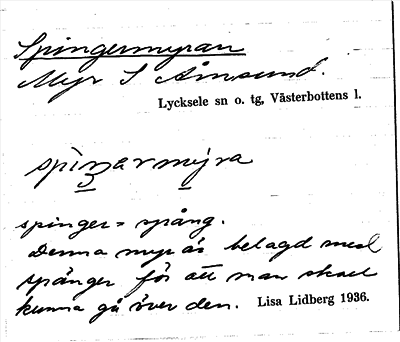 Spingermyran
Myr S Åmsund.
Lycksele sn o. tg, Västerbottens l.
spìŋarmỳra
spinger = spång.
Denna myr är belagd med
spänger för att man skall
kunna gå över den. Lisa Lidberg 1936.